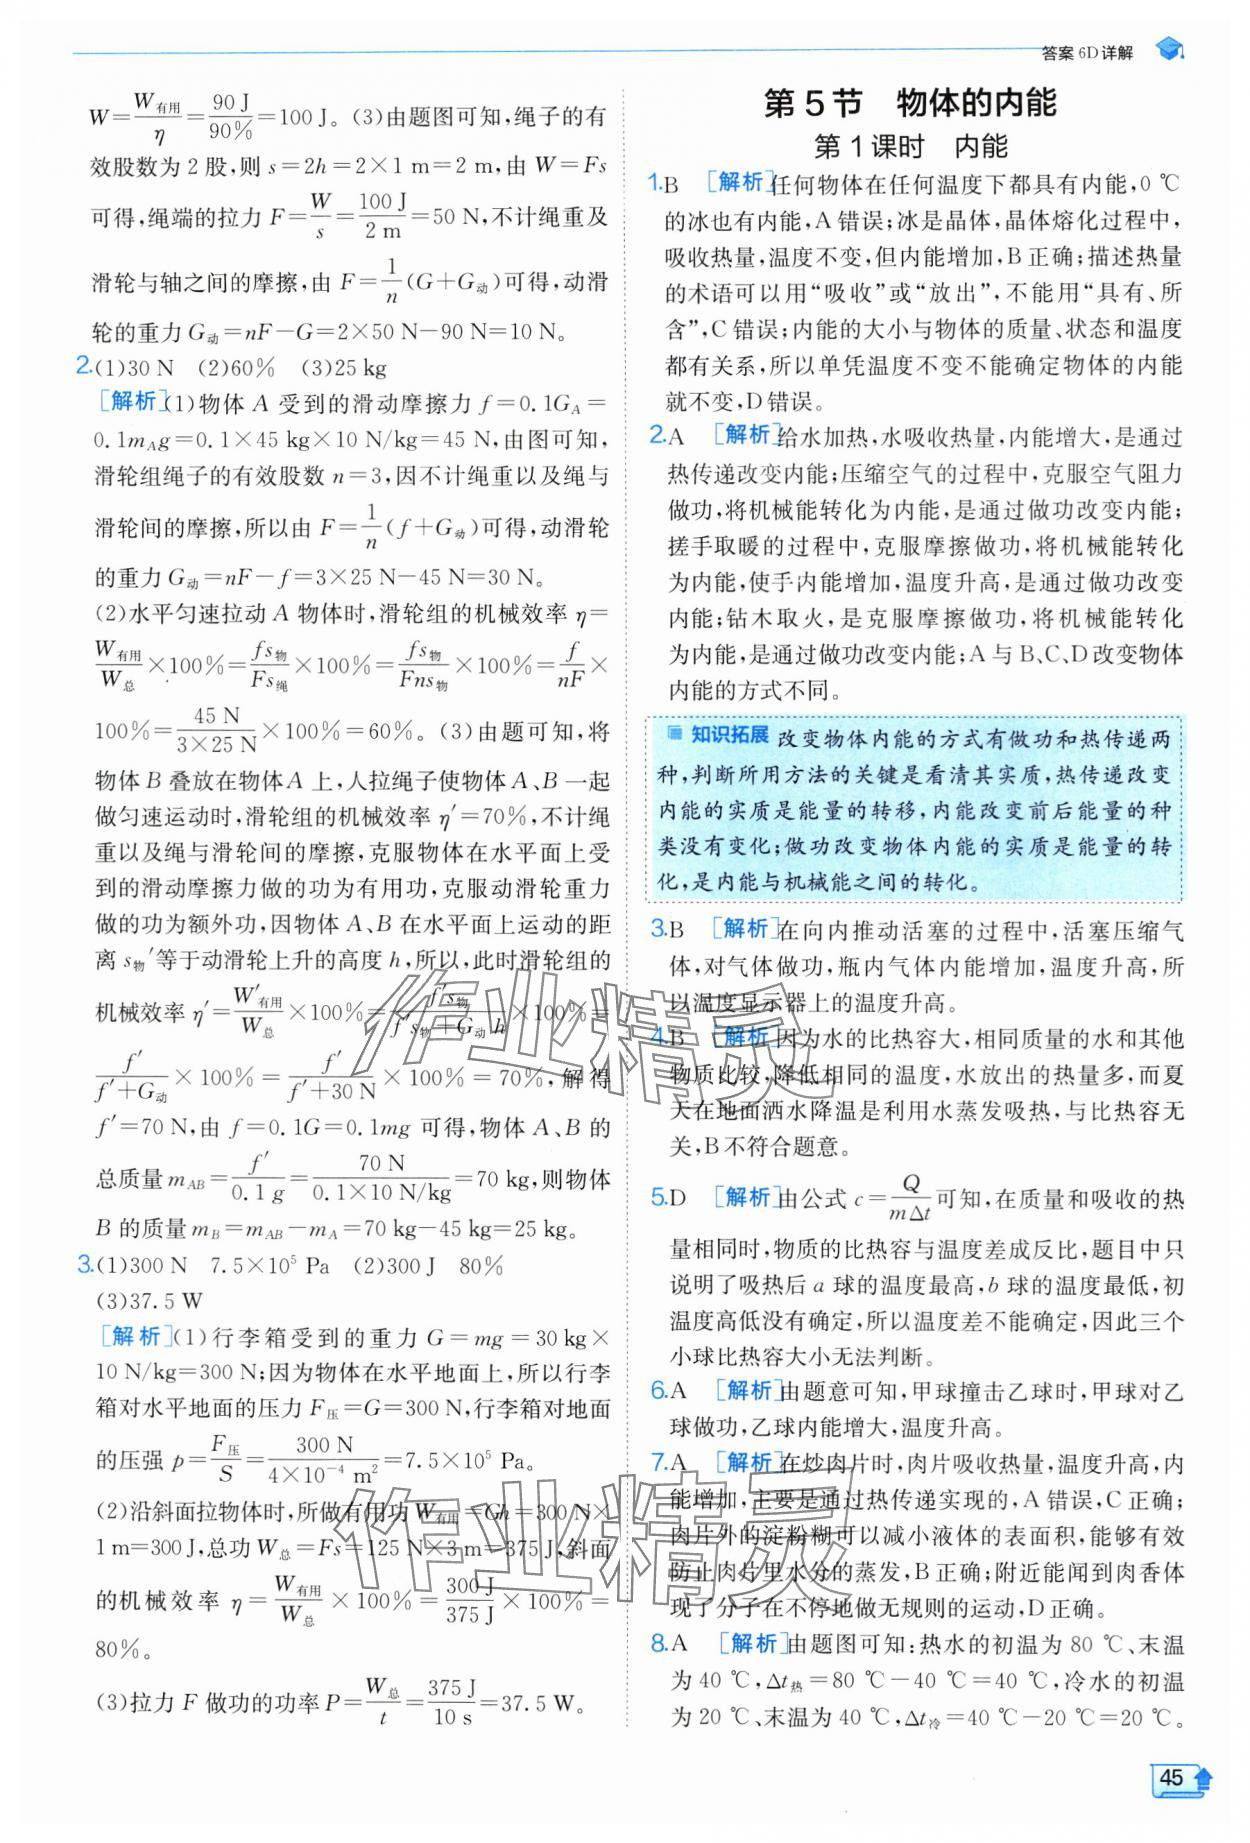 答案 6D 详解
W=W有用/η=90 J/90%=100 J。(3)由题图可知,绳子的有
效股数为 2 股,则 s=2h=2×1 m=2 m,由 W=Fs
可得,绳端的拉力 F=W/s=100 J/2 m=50 N,不计绳重及
滑轮与轴之间的摩擦,由 F=1/n(G+G动)可得,动滑
轮的重力 G动=nF-G=2×50 N-90 N=10 N。
2.(1)30 N (2)60% (3)25 kg
[解析](1)物体 A 受到的滑动摩擦力 f=0.1GA=
0.1mAg=0.1×45 kg×10 N/kg=45 N,由图可知,
滑轮组绳子的有效股数 n=3,因不计绳重以及绳与
滑轮间的摩擦,所以由 F=1/n(f+G动)可得,动滑轮
的重力 G动=nF-f=3×25 N-45 N=30 N。
(2)水平匀速拉动 A 物体时,滑轮组的机械效率 η=
W有用/W总×100%=fs物/Fs绳×100%=fs物/Fns物×100%=f/nF×
100%=45 N/3×25 N×100%=60%。(3)由题可知,将
物体 B 叠放在物体A 上,人拉绳子使物体 A、B 一起
做匀速运动时,滑轮组的机械效率 η′=70%,不计绳
重以及绳与滑轮间的摩擦,克服物体在水平面上受
到的滑动摩擦力做的功为有用功,克服动滑轮重力
做的功为额外功,因物体 A、B 在水平面上运动的距
离 s物′等于动滑轮上升的高度 h,所以,此时滑轮组的
机械效率 η′=W′有用/W总×100%=f′s物/f′s物+G动 h×100%=
f′/f′+G动×100%=f′/f′+30 N×100%=70%,解得
f′=70 N,由 f=0.1G=0.1mg 可得,物体 A、B 的
总质量 mAB=f′/0.1 g=70 N/0.1×10 N/kg=70 kg,则物体
B 的质量 mB=mAB-mA=70 kg-45 kg=25 kg。
3.(1)300 N 7.5×10⁵ Pa (2)300 J 80%
(3)37.5 W
[解析](1)行李箱受到的重力 G=mg=30 kg×
10 N/kg=300 N;因为物体在水平地面上,所以行李
箱对水平地面的压力 F压=G=300 N,行李箱对地面
的压强 p=F压/S=300 N/4×10⁻⁴ m²=7.5×10⁵ Pa。
(2)沿斜面拉物体时,所做有用功 W有用=Gh=300 N×
1 m=300 J,总功 W总=Fs=125 N×3 m=375 J,斜面
的机械效率 η=W有用/W总×100%=300 J/375 J×100%=
80%。
(3)拉力 F 做功的功率 P=W总/t=375 J/10 s=37.5 W。
第 5 节 物体的内能
第 1 课时 内能
1.B [解析]任何物体在任何温度下都具有内能,0 ℃
的冰也有内能,A 错误;冰是晶体,晶体熔化过程中,
吸收热量,温度不变,但内能增加,B 正确;描述热量
的术语可以用“吸收”或“放出”,不能用“具有、所
含”,C 错误;内能的大小与物体的质量、状态和温度
都有关系,所以单凭温度不变不能确定物体的内能
就不变,D 错误。
2.A [解析]给水加热,水吸收热量,内能增大,是通过
热传递改变内能;压缩空气的过程中,克服空气阻力
做功,将机械能转化为内能,是通过做功改变内能;
搓手取暖的过程中,克服摩擦做功,将机械能转化
为内能,使手内能增加,温度升高,是通过做功改变
内能;钻木取火,是克服摩擦做功,将机械能转化
为内能,是通过做功改变内能;A 与 B、C、D 改变物体
内能的方式不同。
知识拓展 改变物体内能的方式有做功和热传递两
种,判断所用方法的关键是看清其实质,热传递改变
内能的实质是能量的转移,内能改变前后能量的种
类没有变化;做功改变物体内能的实质是能量的转
化,是内能与机械能之间的转化。
3.B [解析]在向内推动活塞的过程中,活塞压缩气
体,对气体做功,瓶内气体内能增加,温度升高,所
以温度显示器上的温度升高。
4.B [解析]因为水的比热容大,相同质量的水和其他
物质比较,降低相同的温度,水放出的热量多,而夏
天在地面洒水降温是利用水蒸发吸热,与比热容无
关,B 不符合题意。
5.D [解析]由公式 c=Q/mΔt可知,在质量和吸收的热
量相同时,物质的比热容与温度差成反比,题目中只
说明了吸热后 a 球的温度最高,b 球的温度最低,初
温度高低没有确定,所以温度差不能确定,因此三个
小球比热容大小无法判断。
6.A [解析]由题意可知,甲球撞击乙球时,甲球对乙
球做功,乙球内能增大,温度升高。
7.A [解析]在炒肉片时,肉片吸收热量,温度升高,内
能增加,主要是通过热传递实现的,A 错误,C 正确;
肉片外的淀粉糊可以减小液体的表面积,能够有效
防止肉片里水分的蒸发,B 正确;附近能闻到肉香体
现了分子在不停地做无规则的运动,D 正确。
8.A [解析]由题图可知:热水的初温为 80 ℃、末温
为 40 ℃,Δt热=80 ℃-40 ℃=40 ℃,冷水的初温
为 20 ℃、末温为 40 ℃,Δt冷=40 ℃-20 ℃=20 ℃。
作业精灵
作业精灵
45